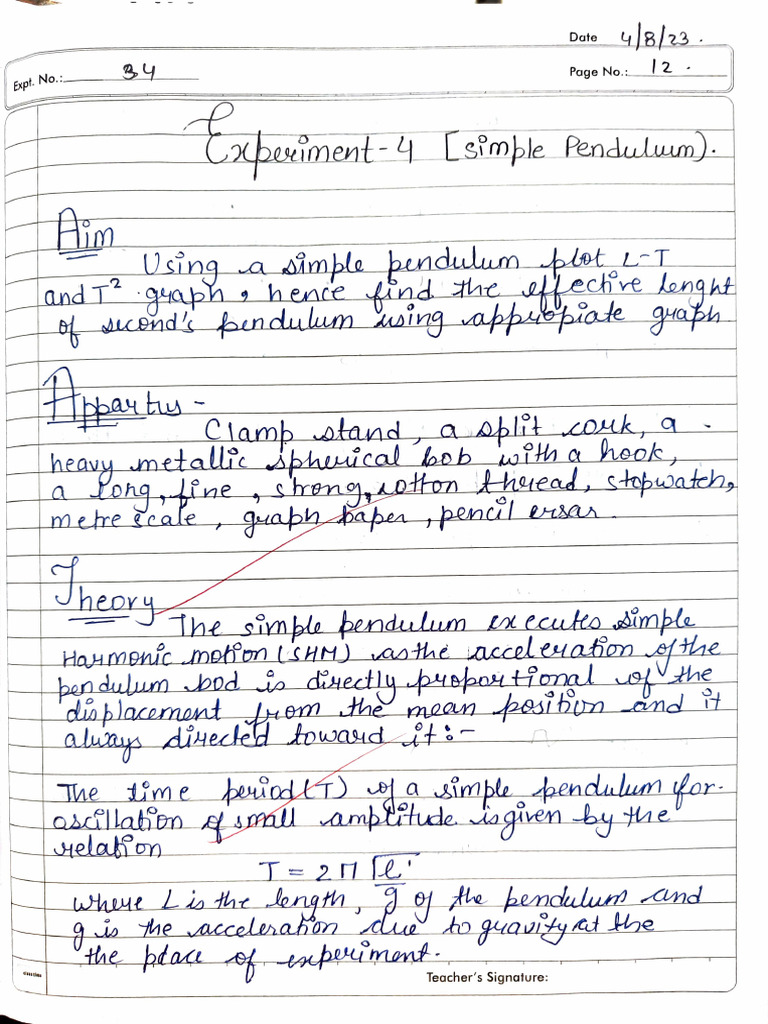 Date 4/8/23.
Expt. No.: 34
Page No.: 12.
Experiment-4 [simple Pendulum).
Aim
Using a simple pendulum plot L-T
and T² graph, hence find the effective lenght
of second's pendulum using appropiate graph
Appartus -
Clamp stand, a split cork, a
heavy metallic spherical bob with a hook,
a long, fine, strong, cotton thread, stopwatch,
metre scale, graph paper, pencil ersar.
Theory
The simple pendulum executes simple
Harmonic motion (SHM) as the acceleration of the
pendulum bod is directly proportional of the
displacement from the mean position and it
always directed toward it:-
The time period (T) of a simple pendulum for
oscillation of small amplitude is given by the
relation
T = 2π √l/g
where L is the length, of the pendulum and
g is the acceleration due to gravity at the
the place of experiment.
Teacher's Signature: